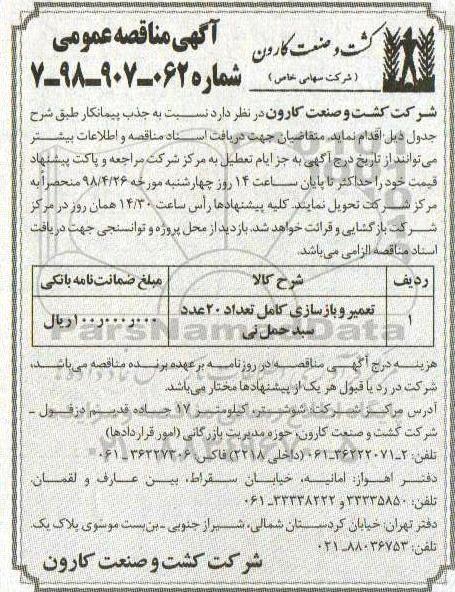 آگهی مناقصه عمومی
شماره ۰۶۲-۹۰۷-۹۸-۷
کشت و صنعت کارون
( شرکت سهامی خاص )
شرکت کشت و صنعت کارون در نظر دارد نسبت به جذب پیمانکار طبق شرح
جدول ذیل اقدام نماید. متقاضیان جهت دریافت اسناد مناقصه و اطلاعات بیشتر
می‌توانند از تاریخ درج آگهی به جز ایام تعطیل به مرکز شرکت مراجعه و پاکت پیشنهاد
قیمت خود را حداکثر تا پایان ساعت ۱۴ روز چهارشنبه مورخه ۹۸/۴/۲۶ منحصراً به
مرکز شرکت تحویل نمایند. کلیه پیشنهادها رأس ساعت ۱۴/۳۰ همان روز در مرکز
شرکت بازگشایی و قرائت خواهد شد. بازدید از محل پروژه و توانسنجی جهت دریافت
اسناد مناقصه الزامی می‌باشد.
ردیف شرح کالا مبلغ ضمانت‌نامه بانکی
۱ تعمیر و بازسازی کامل تعداد ۲۰ عدد سبد حمل نی ۱۰۰ر۰۰۰ر۰۰۰ ریال
ParsNamadData
هزینه درج آگهی مناقصه در روزنامه بر عهده برنده مناقصه می‌باشد،
شرکت در رد یا قبول هر یک از پیشنهادها مختار می‌باشد.
آدرس مرکز شرکت: شوشتر، کیلومتر ۱۷ جاده قدیم دزفول -
شرکت کشت و صنعت کارون، حوزه مدیریت بازرگانی (امور قراردادها)
تلفن: ۲-۳۶۲۲۲۰۷۱-۰۶۱ (داخلی ۲۲۱۸) فاکس: ۳۶۲۲۷۳۰۶-۰۶۱
دفتر اهواز: امانیه، خیابان سقراط، بین عارف و لقمان.
تلفن: ۳۳۳۳۵۸۵۰ و ۳۳۳۳۸۲۲۲-۰۶۱
دفتر تهران: خیابان کردستان شمالی، شیراز جنوبی - بن‌بست موسوی پلاک یک.
تلفن: ۸۸۰۳۶۷۵۳-۰۲۱
شرکت کشت و صنعت کارون